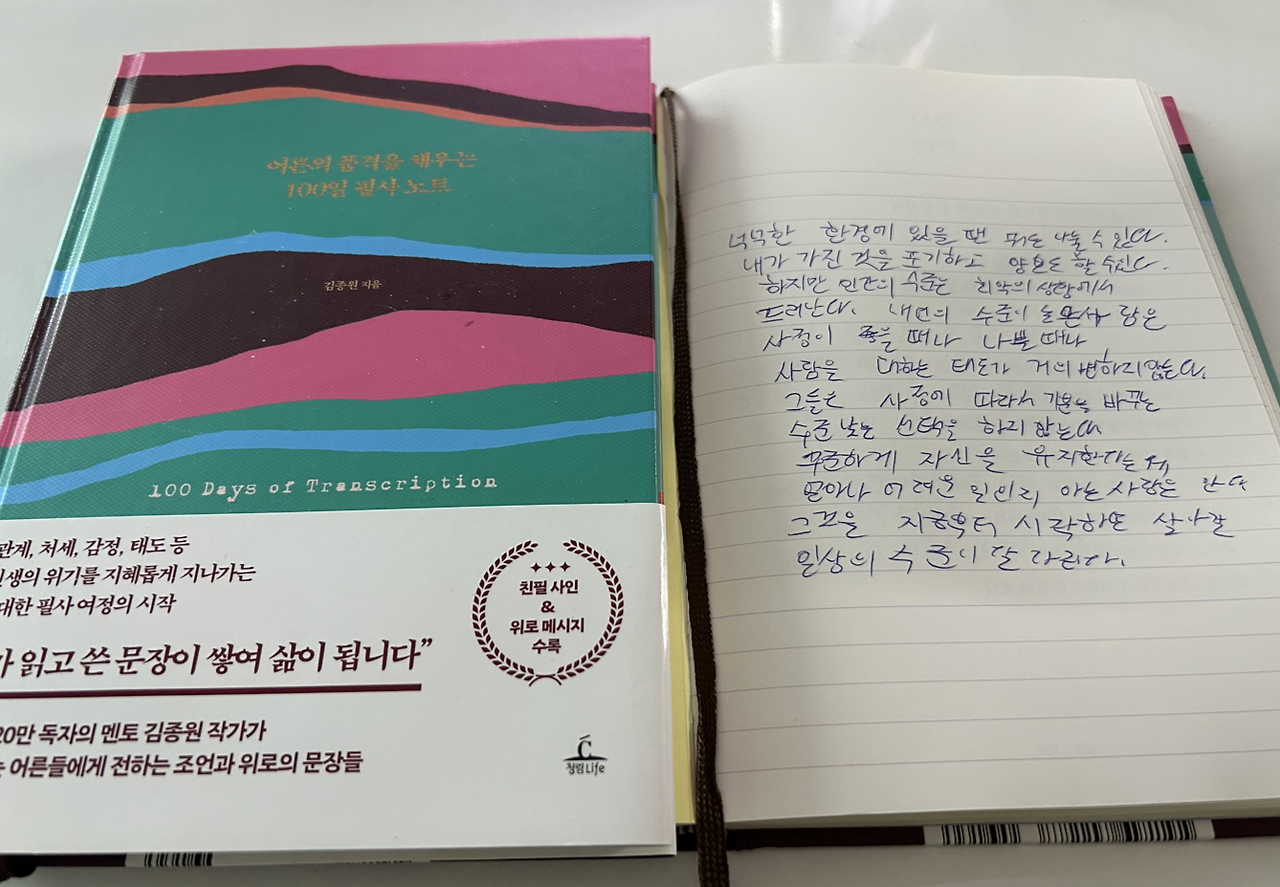 어른의 품격을 채우는
100일 필사 노트
김종원 지음
100 Days of Transcription
관계, 처세, 감정, 태도 등
인생의 위기를 지혜롭게 지나가는
대한 필사 여정의 시작
가 읽고 쓴 문장이 쌓여 삶이 됩니다”
친필 사인
&
위로 메시지
수록
20만 독자의 멘토 김종원 작가가
는 어른들에게 전하는 조언과 위로의 문장들
청림Life
넉넉한 환경에 있을 땐 뭐든 나눌 수 있다.
내가 가진 것을 포기하고 양보도 할 수 있다.
하지만 인간의 수준은 최악의 상황에서
드러난다. 내면의 수준이 높은 사람은
사정이 좋을 때나 나쁠 때나
사람을 대하는 태도가 거의 변하지 않는다.
그들은 사정에 따라서 기분을 바꾸는
수준 낮은 선택을 하지 않는다
꾸준하게 자신을 유지한다는 게
얼마나 어려운 일인지 아는 사람은 안다
그것을 지금부터 시작하면 살아갈
일상의 수준이 달라진다.